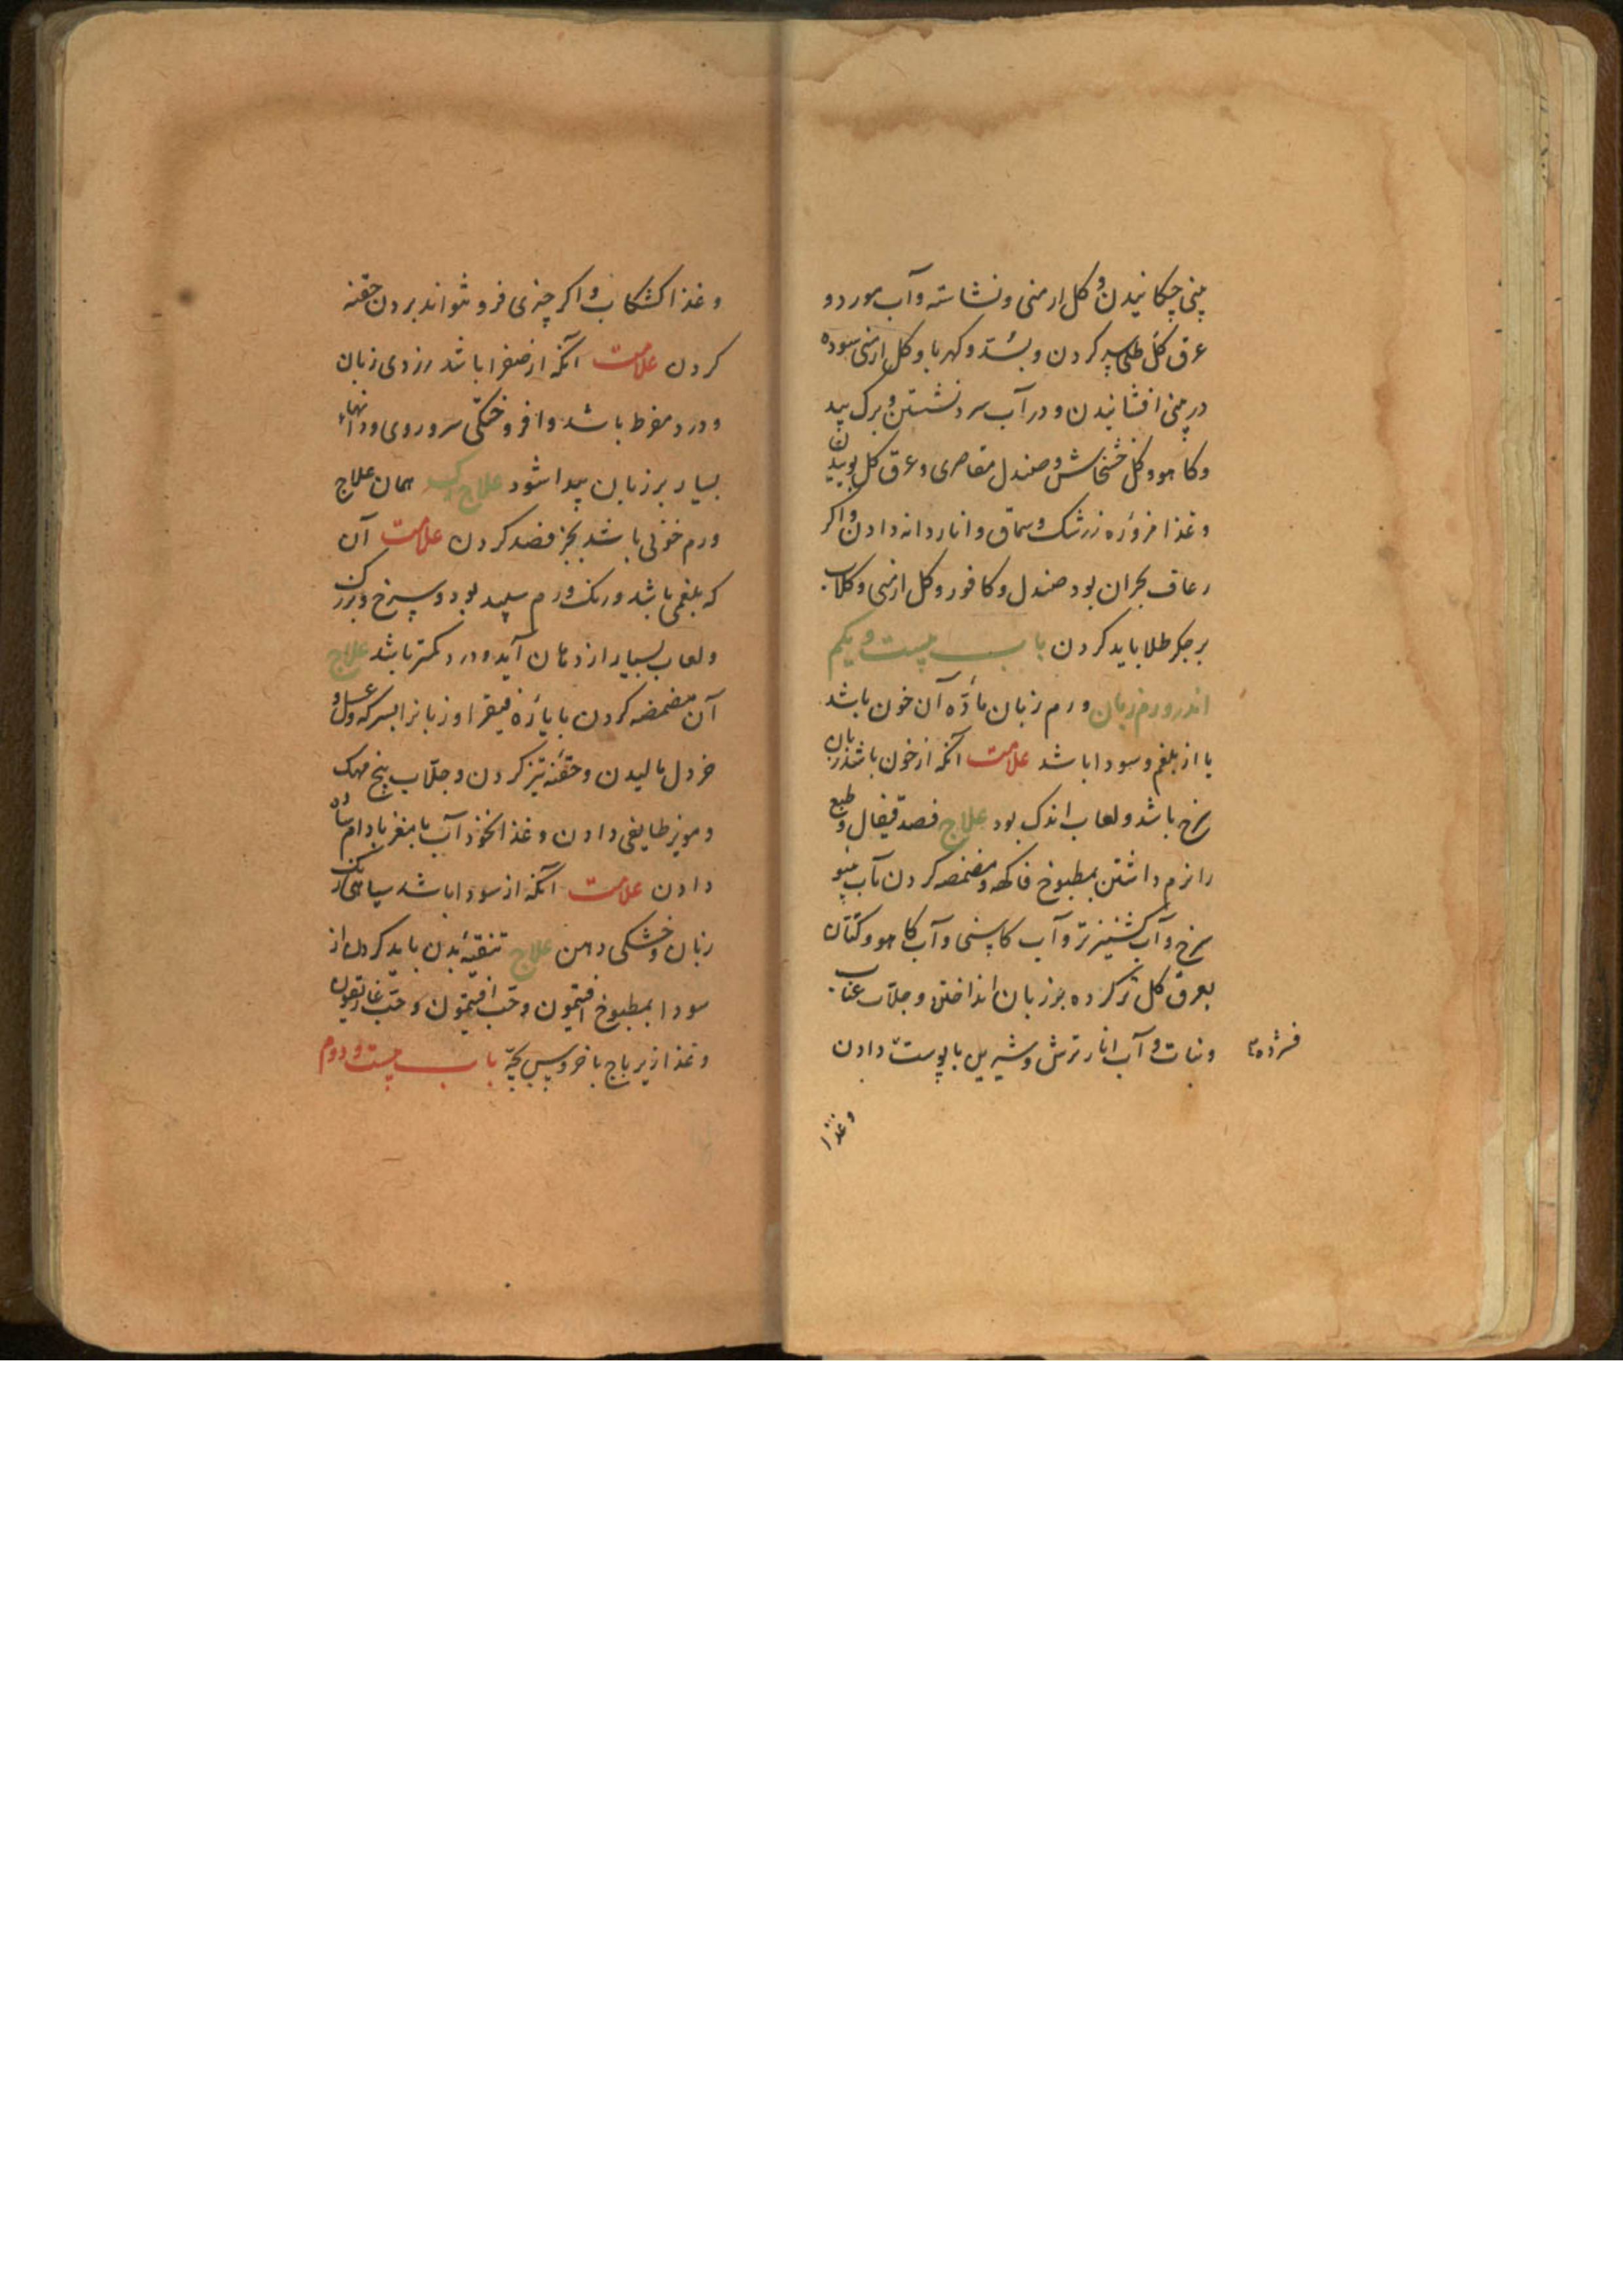 بینی چکانیدن و کل ارمنی و نشاسته و آب مورد و
عرق کل طلی کردن و بسد و کهربا و کل ارمنی سوده
در بینی افشانیدن و در آب سرد نشستن و برک بید
و کاهو و کل خشخاش و صندل مقاصری و عرق کل بوییدن
و غذا مزوره زرشک و سماق و اناردانه دادن و اکر
رعاف بحران بود صندل و کافور و کل ارمنی و کلاب
بر جکر طلا باید کردن باب بیست و یکم
اندر ورم زبان ورم زبان ماده آن خون باشد
یا از بلغم و سودا باشد علامت آنکه از خون باشد زبان
سرخ باشد و لعاب اندک بود علاج فصد قیفال و طبع
را نرم داشتن بمطبوخ فاکهه و مضمضه کردن بآب
سرخ و آب کشنیز تر و آب کاسنی و آب کاهو و کتان
بعرق کل تر کرده بر زبان انداختن و جلاب عناب
و نبات و آب انار ترش و شیرین با پوست دادن
فشرده
و غذا
و غذا کشکاب و اکر چیزی فرو نتواند بردن حقنه
کردن علامت آنکه از صفرا باشد زردی زبان
و درد مفرط باشد و افروختکی سر و روی و دانهاء
بسیار بر زبان پیدا شود علاج همان علاج
ورم خونی باشد بجز فصد کردن علامت آن
که بلغمی باشد و رنک ورم سپید بود و
و لعاب بسیار از دهان آید و درد کمتر باشد علاج
آن مضمضه کردن بایاره فیقرا و زبانرا بسرکه و عسل و
خردل مالیدن و حقنه تیز کردن و جلاب بیخ مهک
و مویز طایفی دادن و غذا نخوذآب با مغز بادام ساده
دادن علامت آنکه از سودا باشد سیاهی رنک
زبان و خشکی دهن علاج تنقیه بدن باید کردن از
سودا بمطبوخ افتیمون و حب افتیمون و حب غاریقون
و غذا زیرباج با خروس بچه باب بیست و دوم